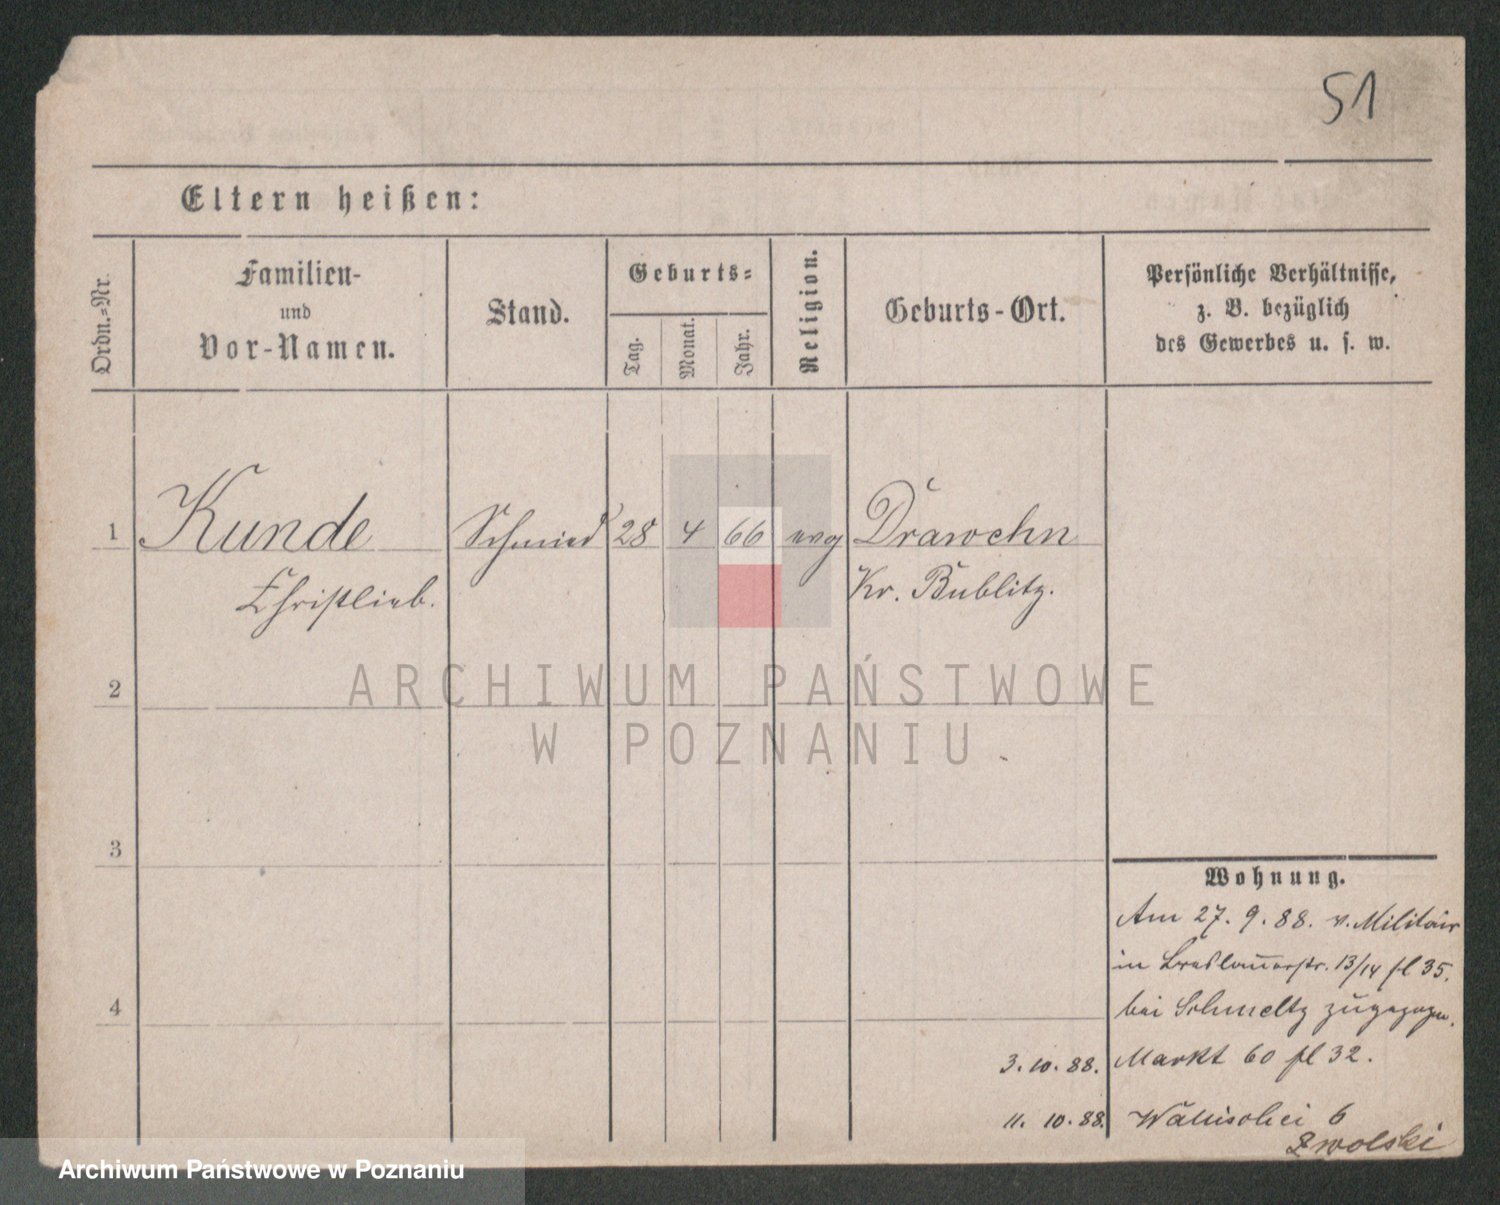 51
Eltern heißen:
Ordn.-Nr.
Familien-
und
Vor-Namen.
Stand.
Geburts-
Tag.
Monat.
Jahr.
Religion.
Geburts-Ort.
Persönliche Verhältnisse,
z. B. bezüglich
des Gewerbes u. s. w.
1 Kunde Schmied 28 4 66 evg Drawehn
Christlieb. Kr. Bublitz.
ARCHIWUM PAŃSTWOWE
W POZNANIU
2
3
4
Wohnung.
Am 27. 9. 88. v. Militair
in Breslauerstr. 13/14 fl 35.
bei Schmeltz zugezogen.
3. 10. 88. Markt 60 fl 32.
11. 10. 88. Wallischei 6
Zwolski
Archiwum Państwowe w Poznaniu